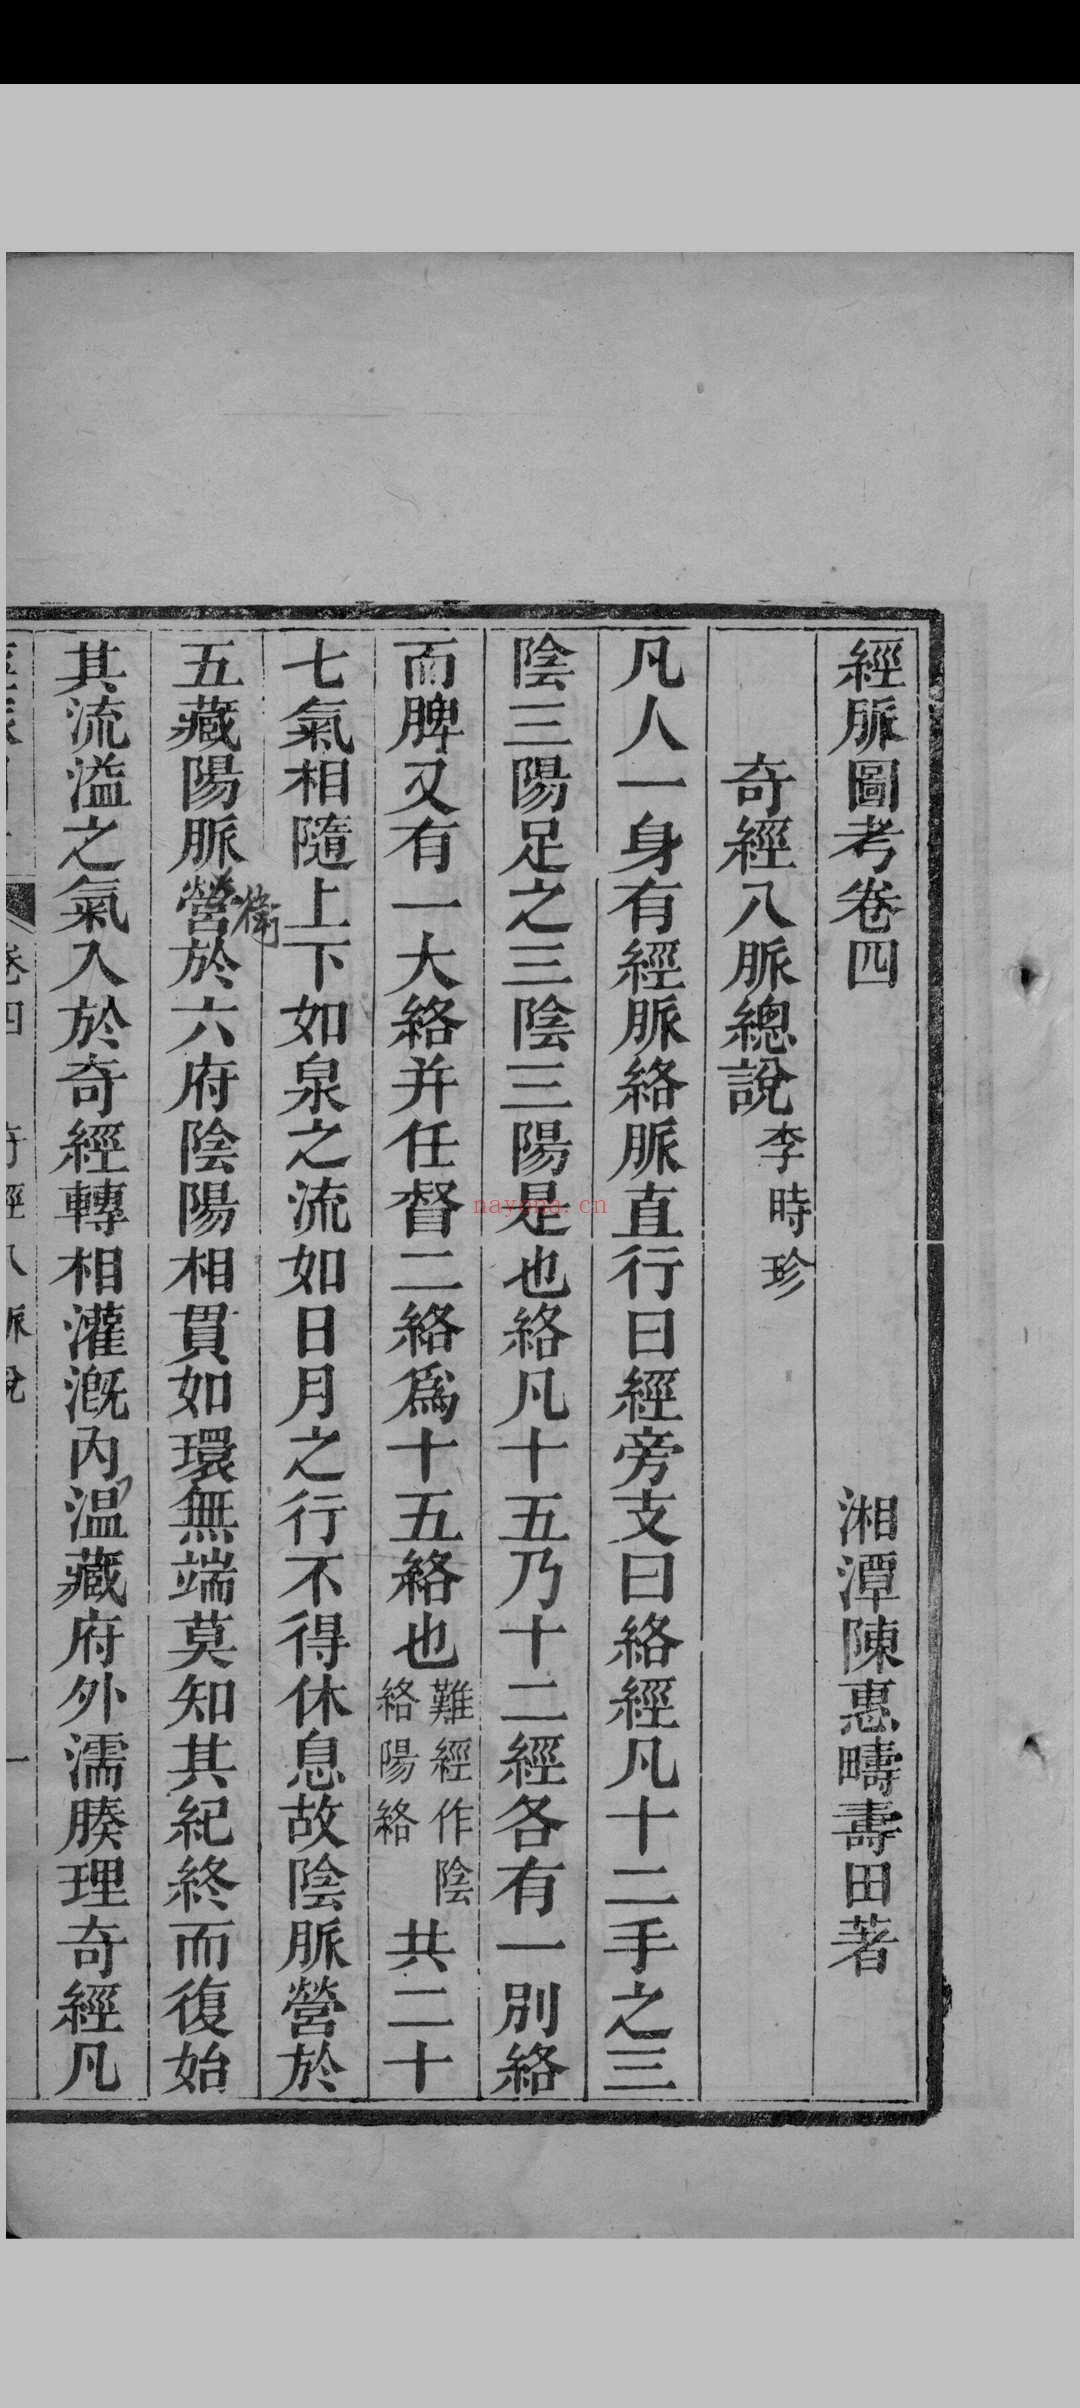 經脈圖考卷四 湘潭陳惠疇壽田著
奇經八脈總說 李時珍
凡人一身有經脈絡脈直行曰經旁支曰絡經凡十二手之三
陰三陽足之三陰三陽是也絡凡十五乃十二經各有一別絡
而脾又有一大絡并任督二絡爲十五絡也 難經作陰絡陽絡 共二十
七氣相隨上下如泉之流如日月之行不得休息故陰脈營於
五藏陽脈營於六府陰陽相貫如環無端莫知其紀終而復始
衛
其流溢之氣入於奇經轉相灌漑內温藏府外濡腠理奇經凡
卷四 奇經八脈說 一
nayona.cn